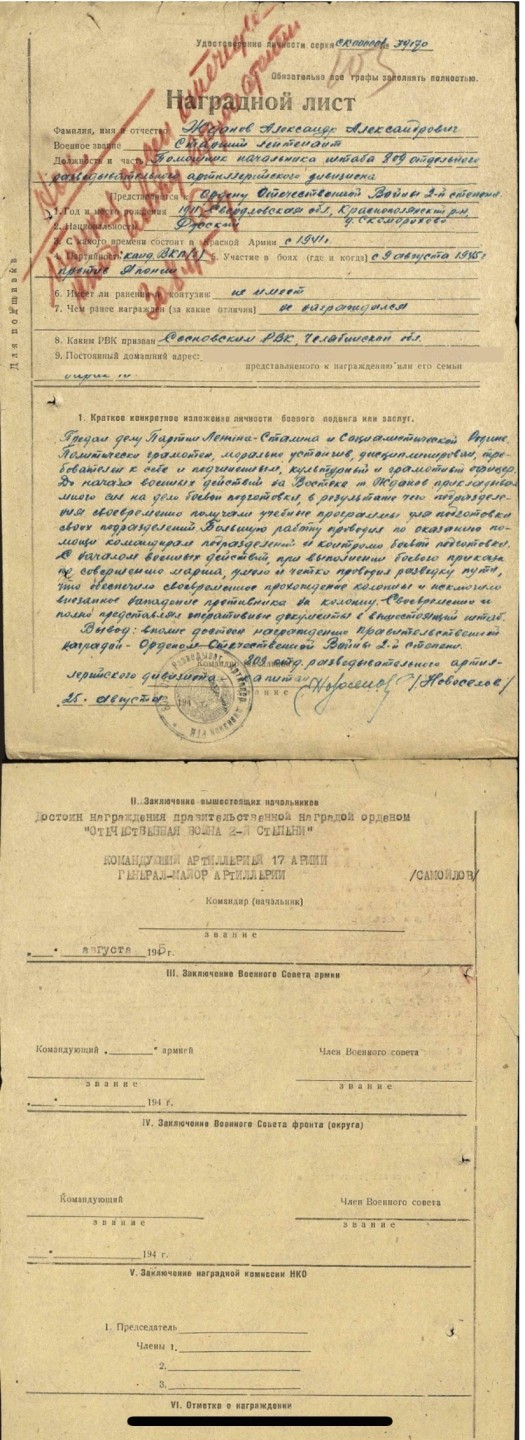 Удостоверение личности серия СК 00006 № 39170
Обязательно все графы заполнять полностью.
Наградной лист
Фамилия, имя и отчество Жданов Александр Александрович
Военное звание Старший лейтенант
Должность и часть Помощник начальника штаба 809 отдельного
разведывательного артиллерийского дивизиона
Представляется к Ордену Отечественной Войны 2-й степени.
1. Год и место рождения Свердловская обл,
2. Национальность Русский
3. С какого времени состоит в Красной Армии с 1941г.
4. Партийность канд. ВКП(б) 5. Участие в боях (где и когда) с 9 августа 1945г
против Японии
6. Имеет ли ранения и контузии не имеет
7. Чем ранее награжден (за какие отличия) не награждался
8. Каким РВК призван Сосновским РВК, Челябинской обл.
9. Постоянный домашний адрес:
представляемого к награждению или его семьи
Для подшивки
1. Краткое конкретное изложение личности боевого подвига или заслуг.
Предан делу Партии Ленина-Сталина и Социалистической Родине.
Политически грамотен, морально устойчив, дисциплинирован, тре-
бователен к себе и подчиненым, культурный и грамотный офицер.
До начала военных действий на Востоке т. Жданов прикладывал
много сил на дело боевой подготовки, в результате чего подразделе-
ния своевременно получали учебные программы для подготовки
своих подразделений. Большую работу проводил по оказанию по-
мощи командирам подразделений и контролю боевой подготовки.
С началом военных действий, при выполнении боевого приказа
по совершению марша, умело и четко проводил разведку пути,
что обеспечило своевременное прохождение колонны и исключило
внезапное нападение противника на колонну. Своевременно и
полно представлял оперативные документы в вышестоящий штаб.
Вывод: вполне достоин награждения правительственной
наградой - Орденом Отечественной Войны 2-й степени.
Командир 809 отд. разведывательного артил-
лерийского дивизиона - капитан /Новоселов/
звание
25 августа 194
II. Заключение вышестоящих начальников
Достоин награждения правительственной наградой орденом
"ОТЕЧЕСТВЕННАЯ ВОЙНА 2-Й СТЕПЕНИ"
КОМАНДУЮЩИЙ АРТИЛЛЕРИЕЙ 17 АРМИИ
ГЕНЕРАЛ-МАЙОР АРТИЛЛЕРИИ /САМОЙЛОВ/
Командир (начальник)
звание
" " августа 1945 г.
III. Заключение Военного Совета армии
Командующий " " армией Член Военного совета
звание звание
" " 194 г.
IV. Заключение Военного Совета фронта (округа)
Командующий Член Военного совета
звание звание
" " 194 г.
V. Заключение наградной комиссии НКО
1. Председатель
Члены 1.
2.
3.
VI. Отметка о награждении